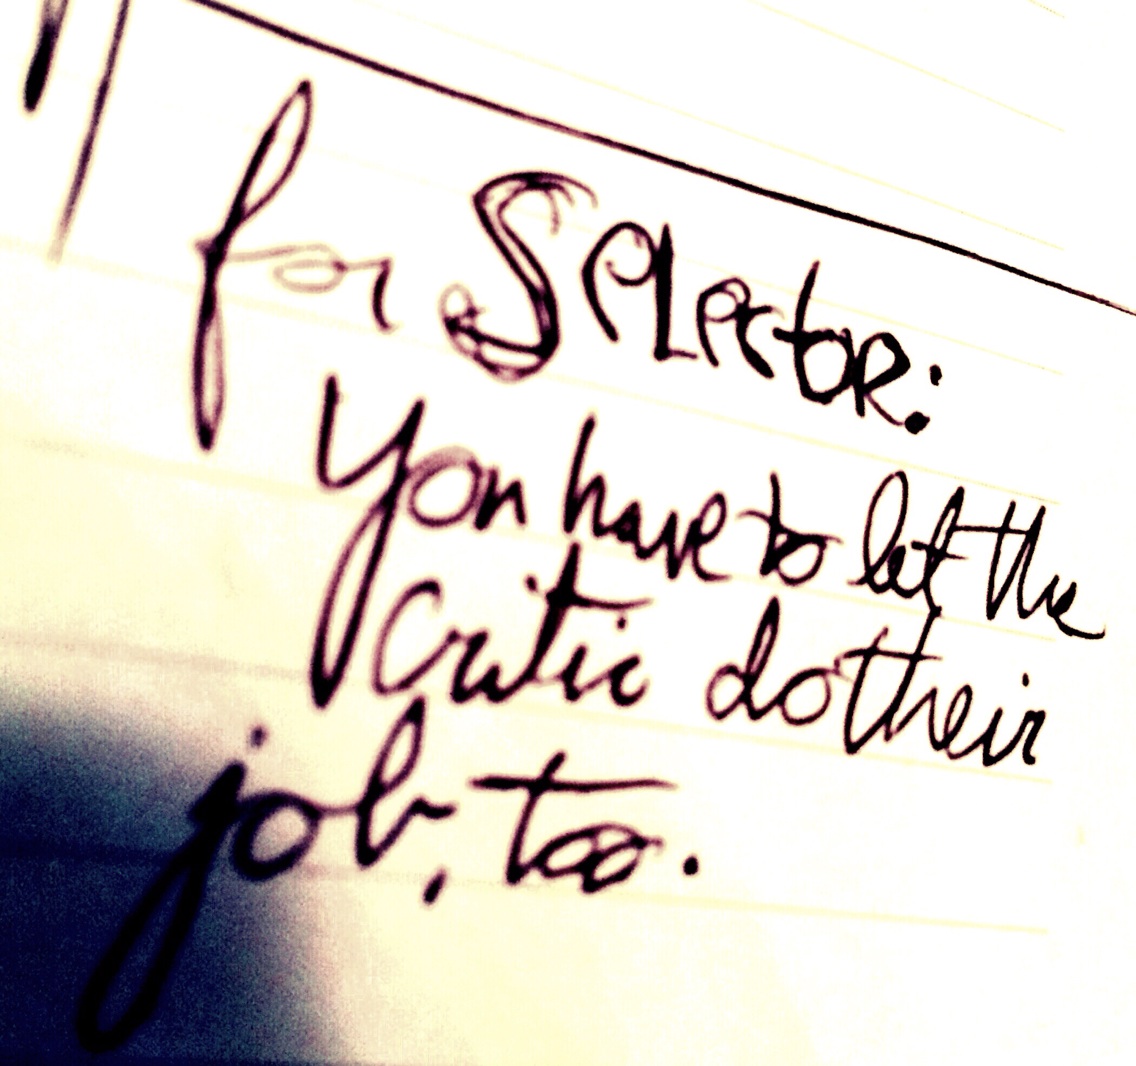 for SELECTOR:
you have to let the
Critic do their
job, too.